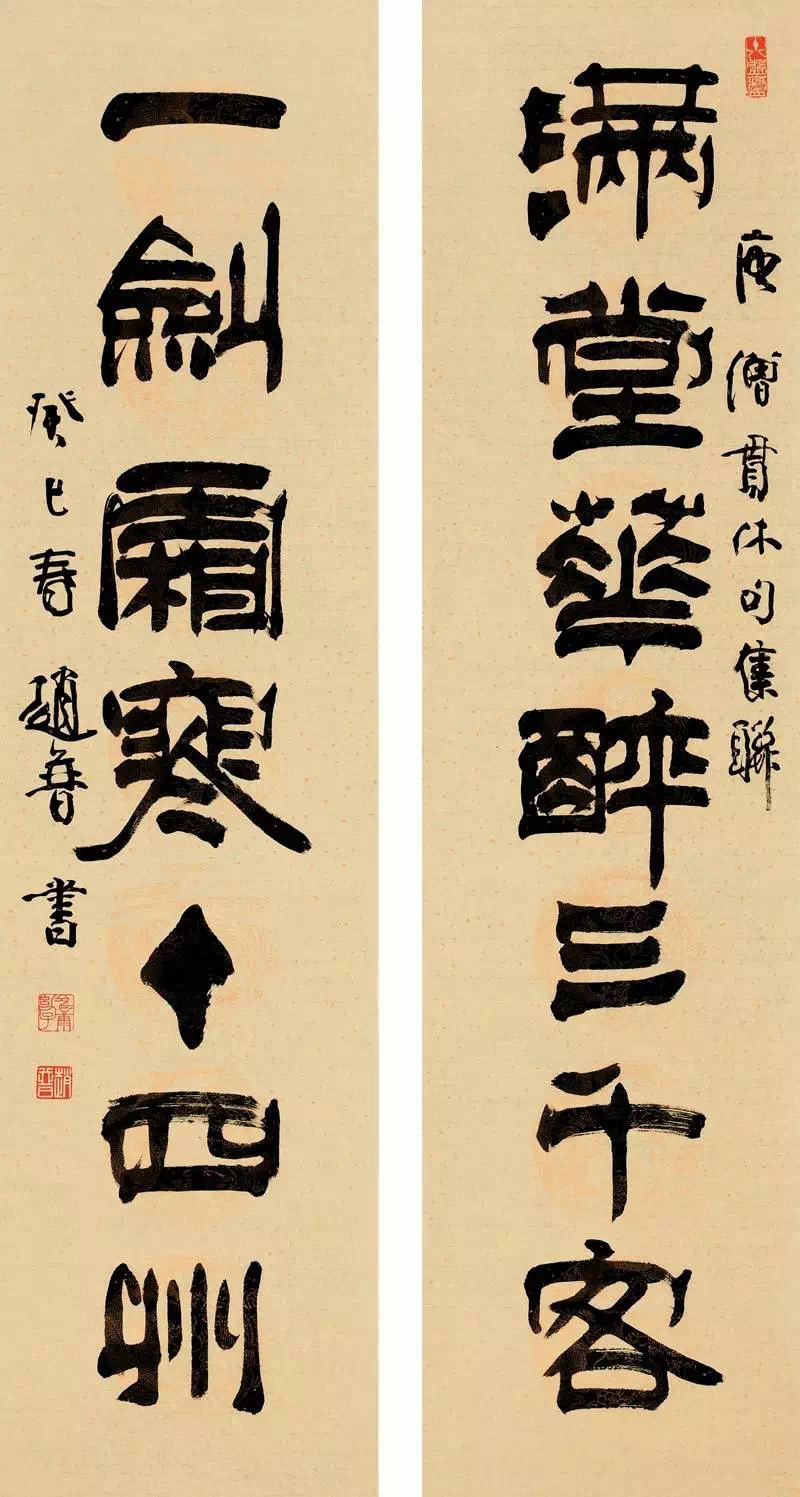 滿堂華醉三千客
唐僧貫休句集聯
一劍霜寒十四州
癸巳春趙普書
趙普